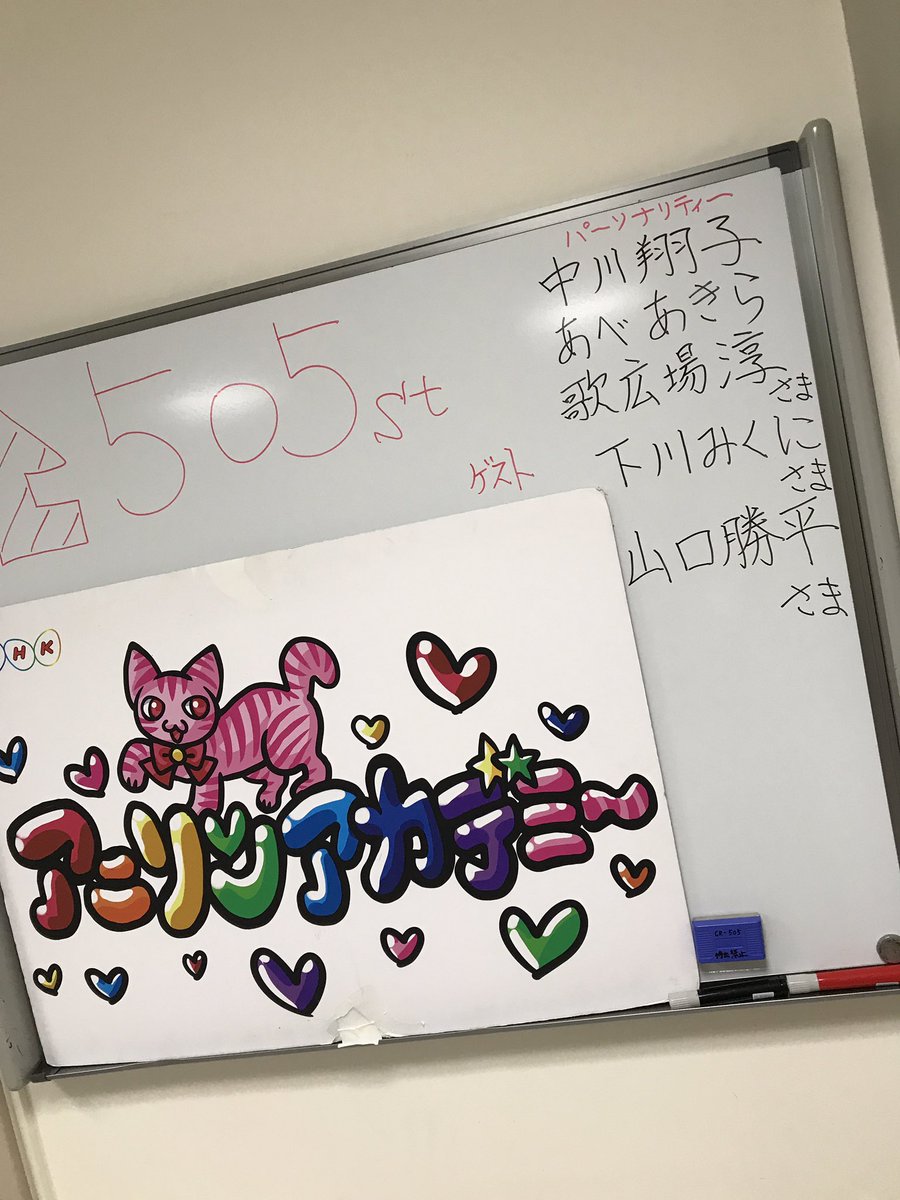 パーソナリティー
中川翔子
あべあきら
歌広場淳さま
505st
ゲスト
下川みくにさま
山口勝平さま
HK
アニソンアカデミー
CR-505
持出禁止